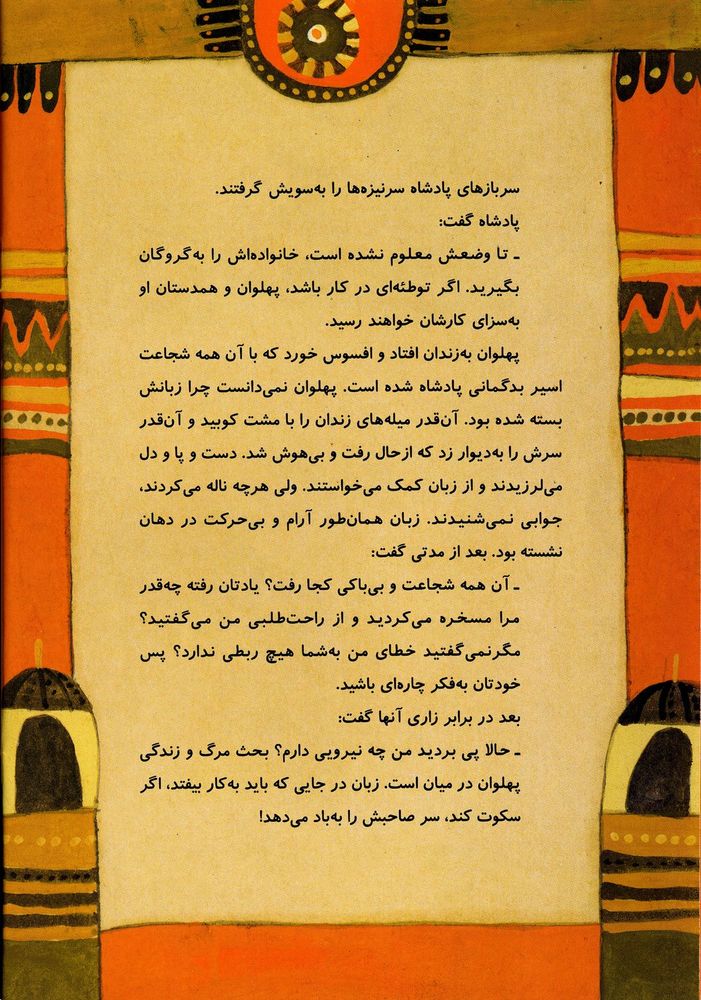 سربازهای پادشاه سرنیزه‌ها را به‌سویش گرفتند.
پادشاه گفت:
ـ تا وضعش معلوم نشده است، خانواده‌اش را به‌گروگان
بگیرید. اگر توطئه‌ای در کار باشد، پهلوان و همدستان او
به‌سزای کارشان خواهند رسید.
پهلوان به‌زندان افتاد و افسوس خورد که با آن همه شجاعت
اسیر بدگمانی پادشاه شده است. پهلوان نمی‌دانست چرا زبانش
بسته شده بود. آن‌قدر میله‌های زندان را با مشت کوبید و آن‌قدر
سرش را به‌دیوار زد که ازحال رفت و بی‌هوش شد. دست و پا و دل
می‌لرزیدند و از زبان کمک می‌خواستند. ولی هرچه ناله می‌کردند،
جوابی نمی‌شنیدند. زبان همان‌طور آرام و بی‌حرکت در دهان
نشسته بود. بعد از مدتی گفت:
ـ آن همه شجاعت و بی‌باکی کجا رفت؟ یادتان رفته چه‌قدر
مرا مسخره می‌کردید و از راحت‌طلبی من می‌گفتید؟
مگرنمی‌گفتید خطای من به‌شما هیچ ربطی ندارد؟ پس
خودتان به‌فکر چاره‌ای باشید.
بعد در برابر زاری آنها گفت:
ـ حالا پی بردید من چه نیرویی دارم؟ بحث مرگ و زندگی
پهلوان در میان است. زبان در جایی که باید به‌کار بیفتد، اگر
سکوت کند، سر صاحبش را به‌باد می‌دهد!